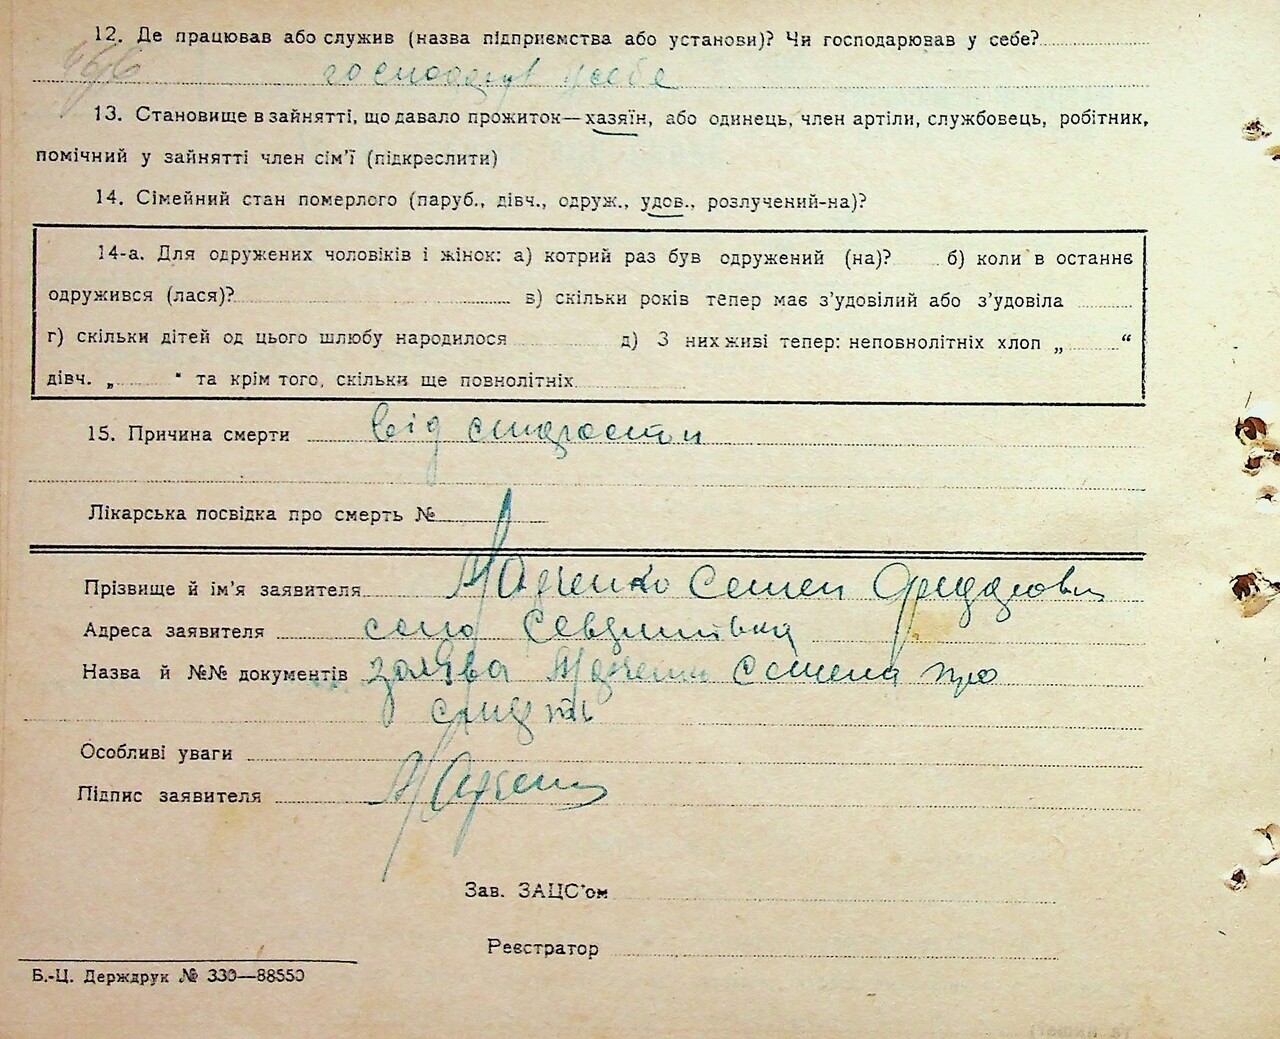 12. Де працював або служив (назва підприємства або установи)? Чи господарював у себе?
господарув у себе
13. Становище в зайнятті, що давало прожиток—хазяїн, або одинець, член артіли, службовець, робітник,
помічний у зайнятті член сім'ї (підкреслити)
14. Сімейний стан померлого (паруб., дівч., одруж., удов., розлучений-на)?
14-а. Для одружених чоловіків і жінок: а) котрий раз був одружений (на)? б) коли в останнє
одружився (лася)? в) скільки років тепер має з'удовілий або з'удовіла
г) скільки дітей од цього шлюбу народилося д) З них живі тепер: неповнолітніх хлоп „ “
дівч. „ “ та крім того, скільки ще повнолітніх
15. Причина смерти від старости
Лікарська посвідка про смерть №
Прізвище й ім'я заявителя Семен
Адреса заявителя село
Назва й №№ документів заява Семена про
смерть
Особливі уваги
Підпис заявителя
Зав. ЗАЦС'ом
Реєстратор
Б.-Ц. Держдрук № 330—88550